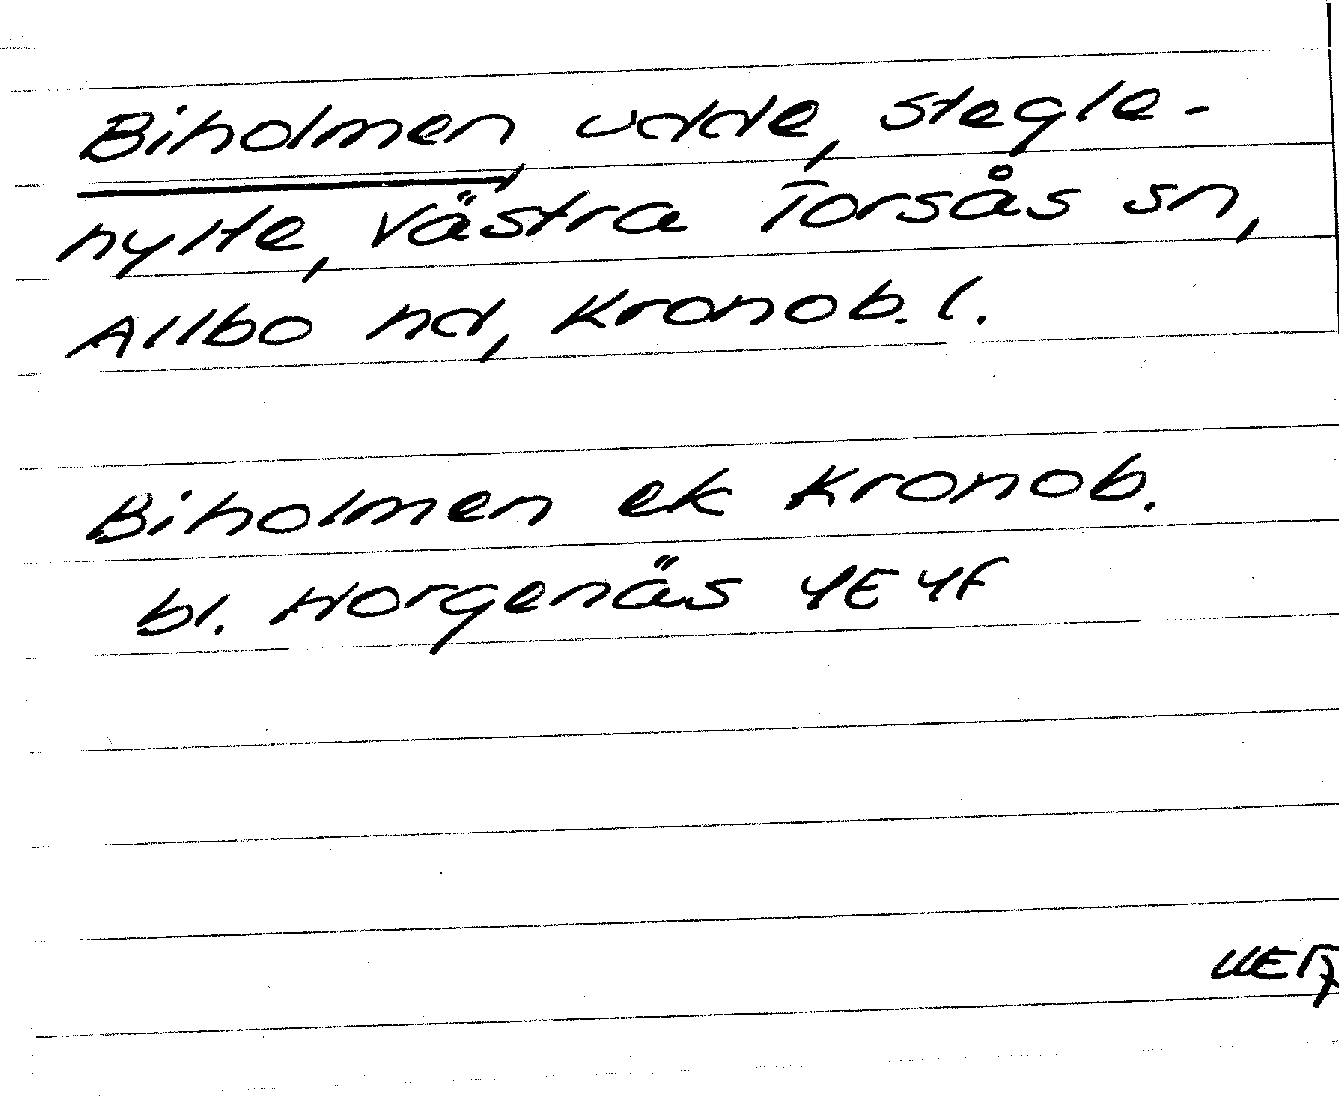 Biholmen, udde, Stegle-
hylte, Västra Torsås sn,
Allbo hd, Kronob. l.
Biholmen ek Kronob.
bl. Horgenäs 4E 4f